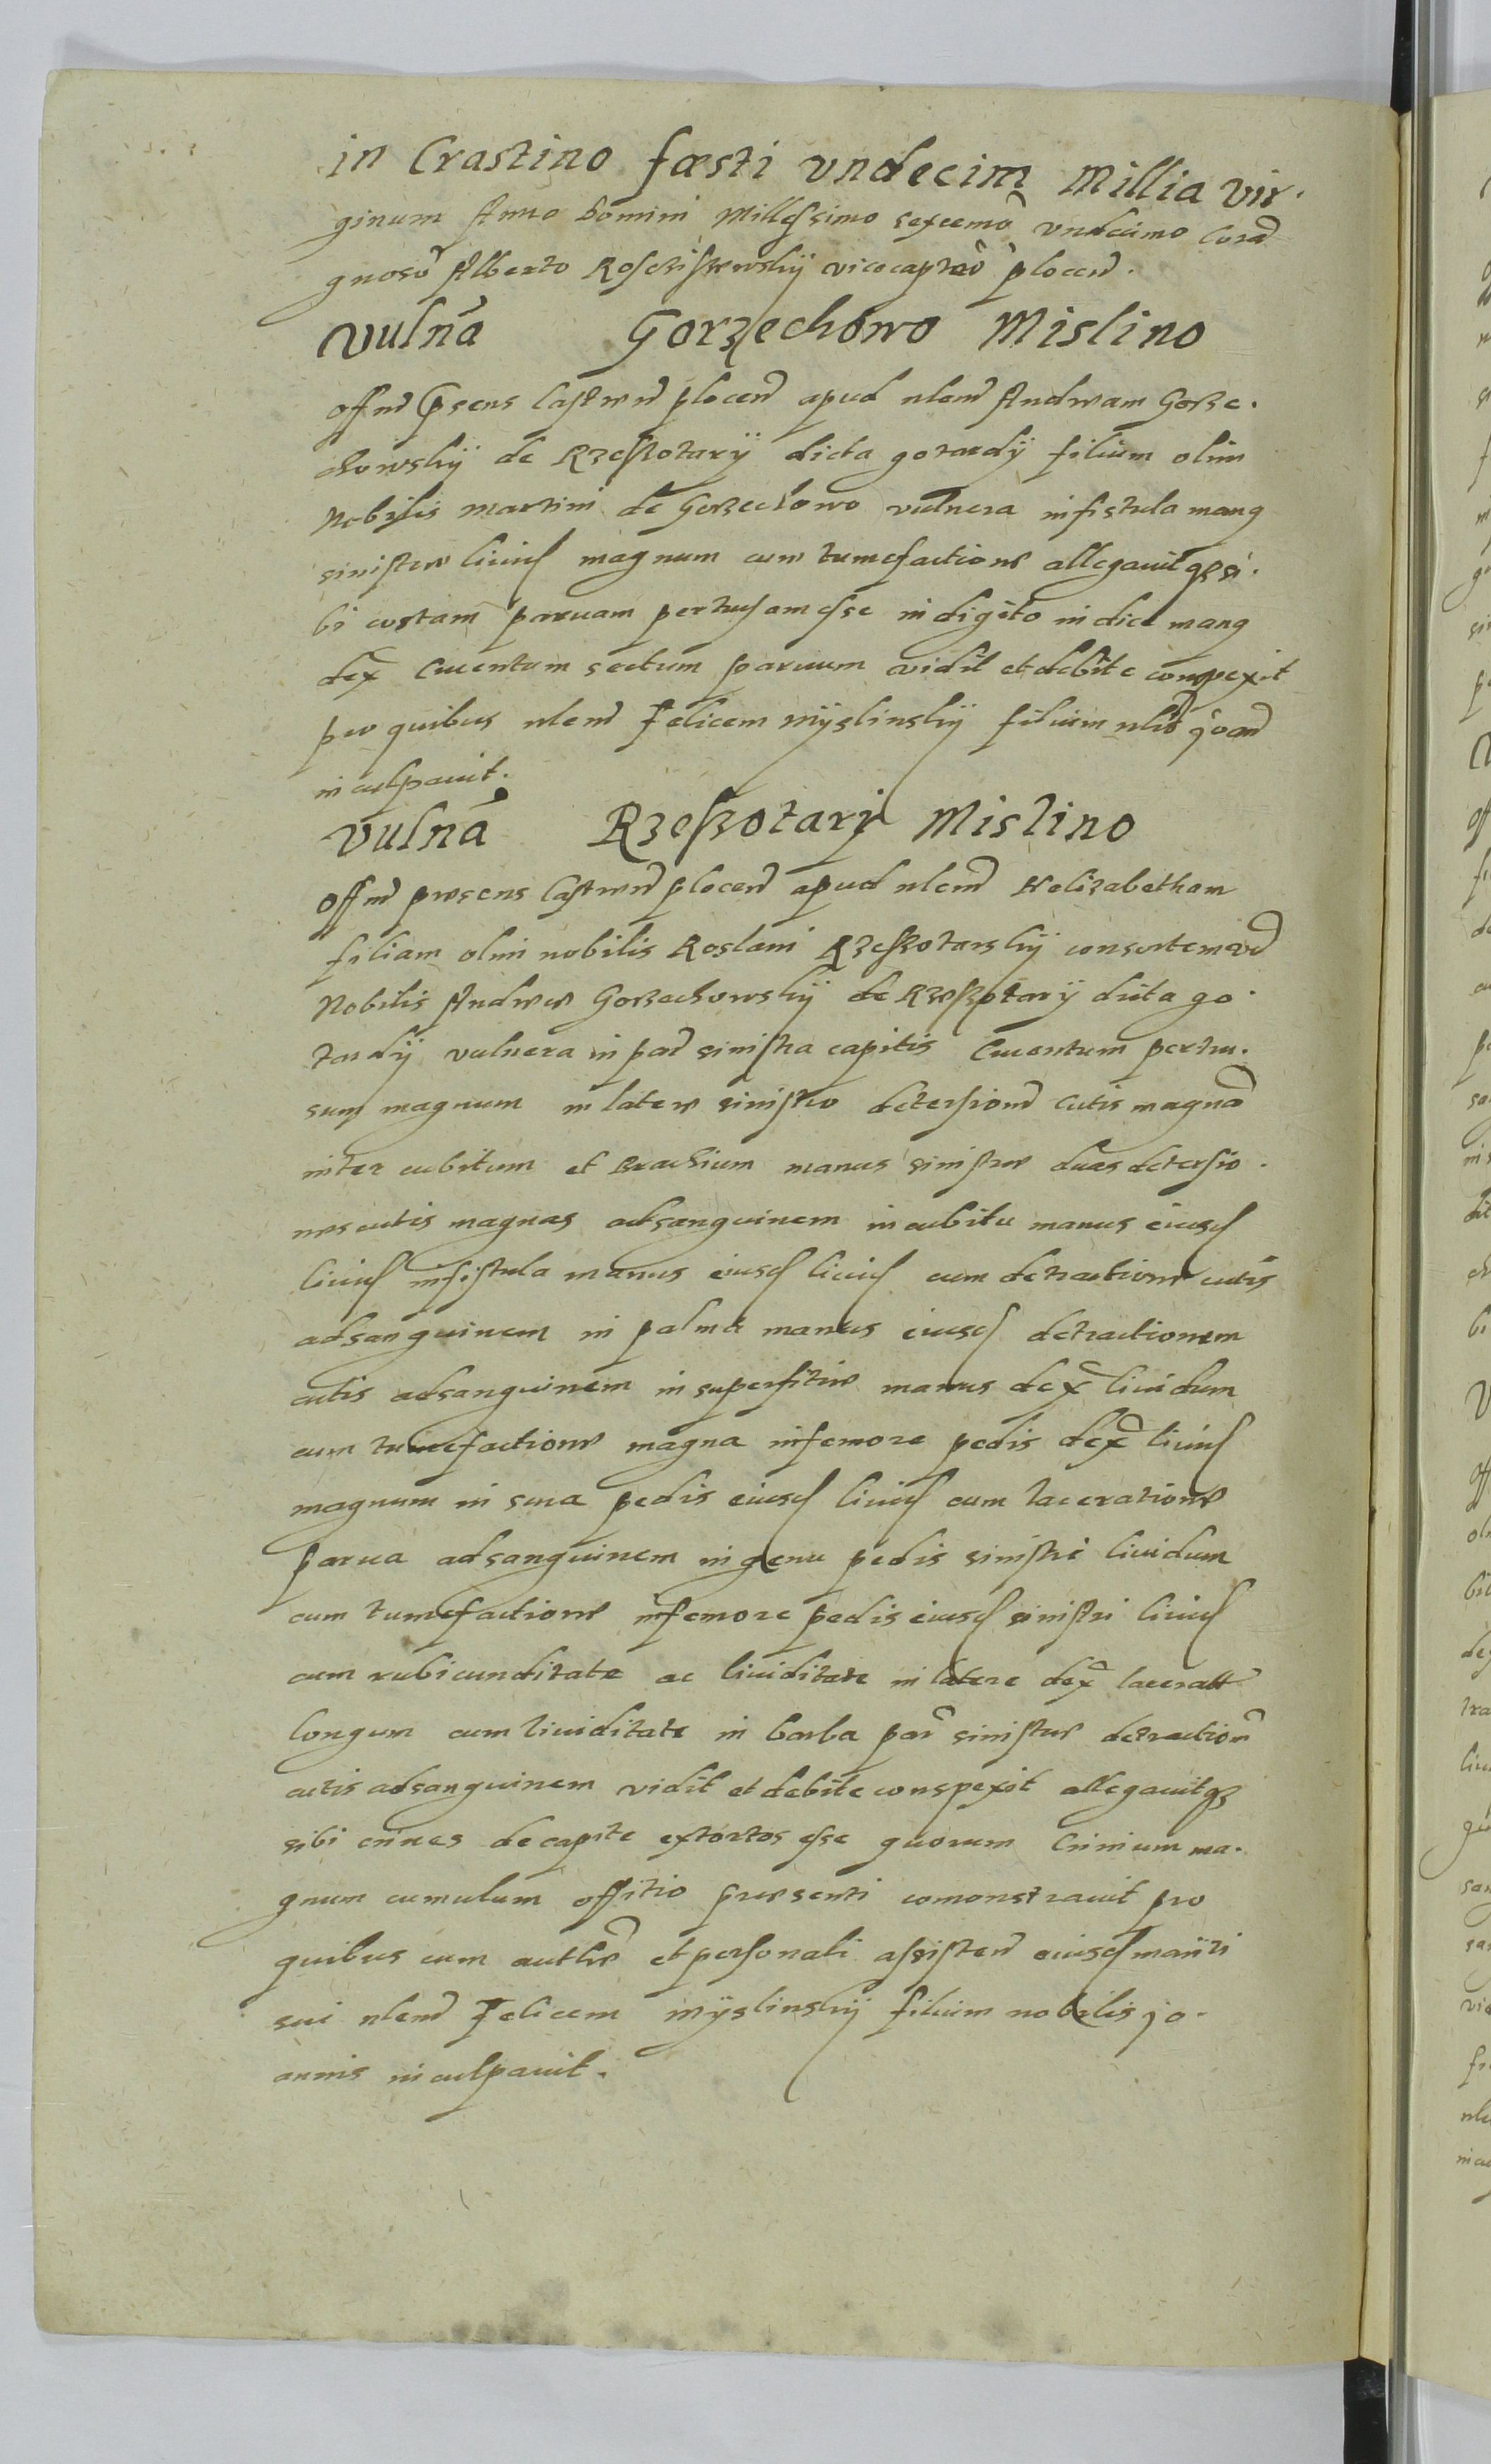 in Crastino fæsti vndecim Millia vir.
ginum Anno Domini Millessimo sexcemõ vndecimo Corã
gnosõ Alberto Rosciszewskij vicecaptnõ plocen̄.
vulnã Gorzechowo Mislino
offm̄ p̃sens Castren̄ plocen̄ apud nlem̄ Andream Gorze.
chowskij de Rzeszotarÿ dicta gotardÿ filium olim
Nobilis martini de Gorzechowo vulnera in fistula manꝯ
sinistræ liuid magnum cum tumefactione allegauitqꝫ si.
bi costam paruam pertusam esse in digito indice manꝯ
dex̃ Cruentum sectum paruum vidit et debite conspexit
pro quibus nlem̄ Felicem mÿslinskij filium nlis̃ joan̄
inculpauit.
vulnã Rzeszotarÿ Mislino
offm̄ præsens Castren̄ plocen̄ apud nlem̄ Helizabetham
filiam olim nobilis Roslani Rzeszotarskij consortem v̄o
Nobilis Andreæ Gorzechowskij de Rzeszotarÿ dicta go.
tardÿ vulnera in par̃ sinistra capitis Cruentum pertu.
sum magnum in latere sinistro detersionē cutis magnã
inter cubitum et Brachium manus sinistræ duas detersio.
nes cutis magnas ad sanguinem in cubitu manus eiusd
liuid in fistula manus eiusd liuid cum detractione cutis
ad sanguinem in palma manus eiusd detractionem
cutis ad sanguinem in superfitie manus dex̃ liuidum
cum tumefactione magna in femore pedis dex̃ liuid
magnum in sura pedis eiusd liuid cum laceratione
parua ad sanguinem in genu pedis sinistri liuidum
cum tumefactione in femore pedis eiusd sinistri liuid
cum rubicunditate ac liuiditate in latere dex̃ laceratt
longum cum liuiditate in barba par̃ sinistræ detractionẽ
cutis ad sanguinem vidit et debite conspexit allegauitqꝫ
sibi crines de capite extortos esse quorum Crinium ma.
gnum cumulum offitio præsenti comonstrauit pro
quibus cum authẽ et personali assisten̄ eiusd mariti
sui nlem̄ Felicem mÿslinskij filium nobilis jo.
annis inculpauit.